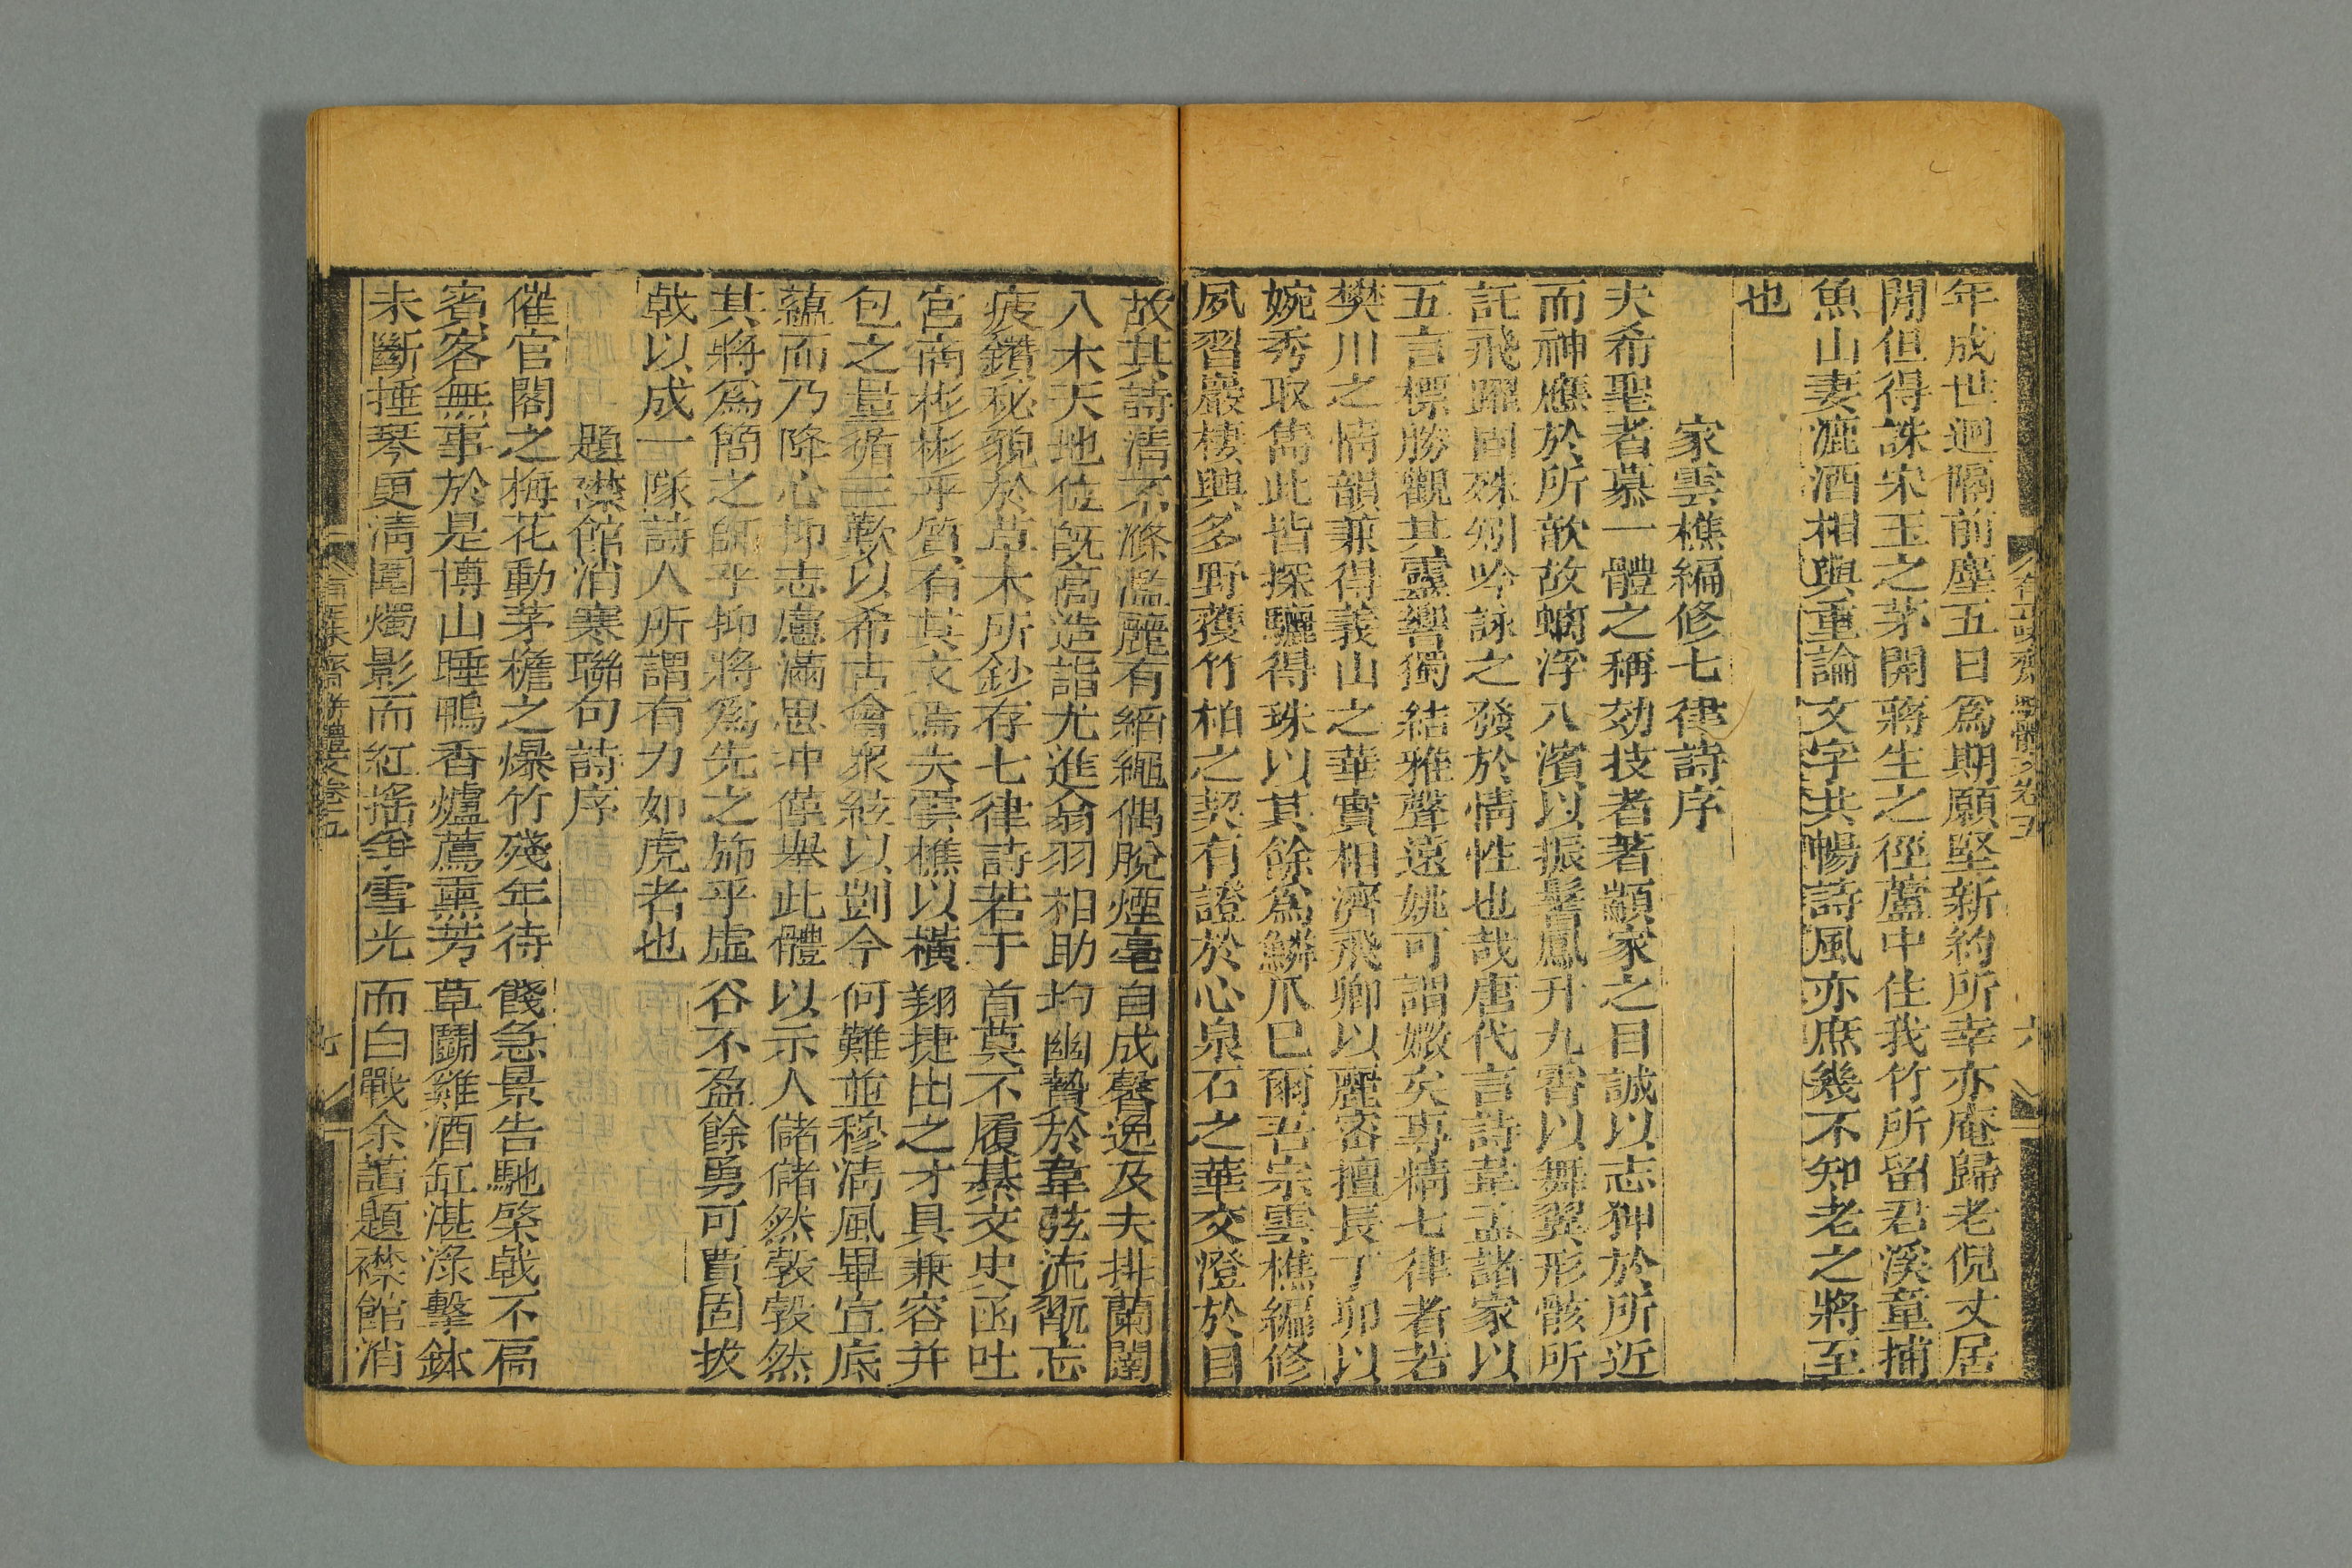 年成世迥隔前塵五日爲期願堅新約所幸亦庵歸老倪丈居
閒但得誅宋玉之茅開蔣生之徑蘆中住我竹所留君溪童捕
魚山妻漉酒相與重論文字共暢詩風亦庶幾不知老之將至
也
家雲樵編修七律詩序
夫希聖者慕一體之稱効技者著顓家之目誠以志狎於所近
而神應於所歆故螭浮八濱以振鬐鳳升九霄以舞翼形骸所
託飛躍固殊矧吟詠之發於情性也哉唐代言詩韋孟諸家以
五言標勝觀其靈響獨結雅聲遠姚可謂嫩矣專精七律者若
樊川之情韻兼得義山之華實相濟飛卿以麗密擅長丁卯以
婉秀取雋此皆探驪得珠以其餘爲鱗爪已爾吾宗雲樵編修
夙習巖棲興多野獲竹柏之契有證於心泉石之華交澄於目
故其詩清不滌濫麗有縚繩偶脫煙毫自成馨逸及夫排蘭闥
入木天地位旣高造詣尤進翕羽相助均幽贄於韋弦流翫忘
疲鑽秘貌於草木所鈔存七律詩若干首莫不履綦交史函吐
宮商彬彬乎質有其文焉夫雲樵以橫翔捷出之才具兼容并
包之量循王歎以希古會衆絃以剴今何難並穆淸風畢宣底
蘊而乃降心抑志慮滿思冲僅舉此體以示人儲儲然彀彀然
其將爲簡之師乎抑將爲先之斾乎虛谷不盈餘勇可賈固拔
戟以成一隊詩人所謂有力如虎者也
題襟館消寒聯句詩序
催官閣之梅花動茅檐之爆竹殘年待餞急景告馳棨戟不扃
賓客無事於是博山睡鴨香爐薦熏芳草鬭雞酒缸湛淥擊鉢
未斷捶琴更淸圍燭影而紅搖爭雪光而白戰余舊題襟館消
七